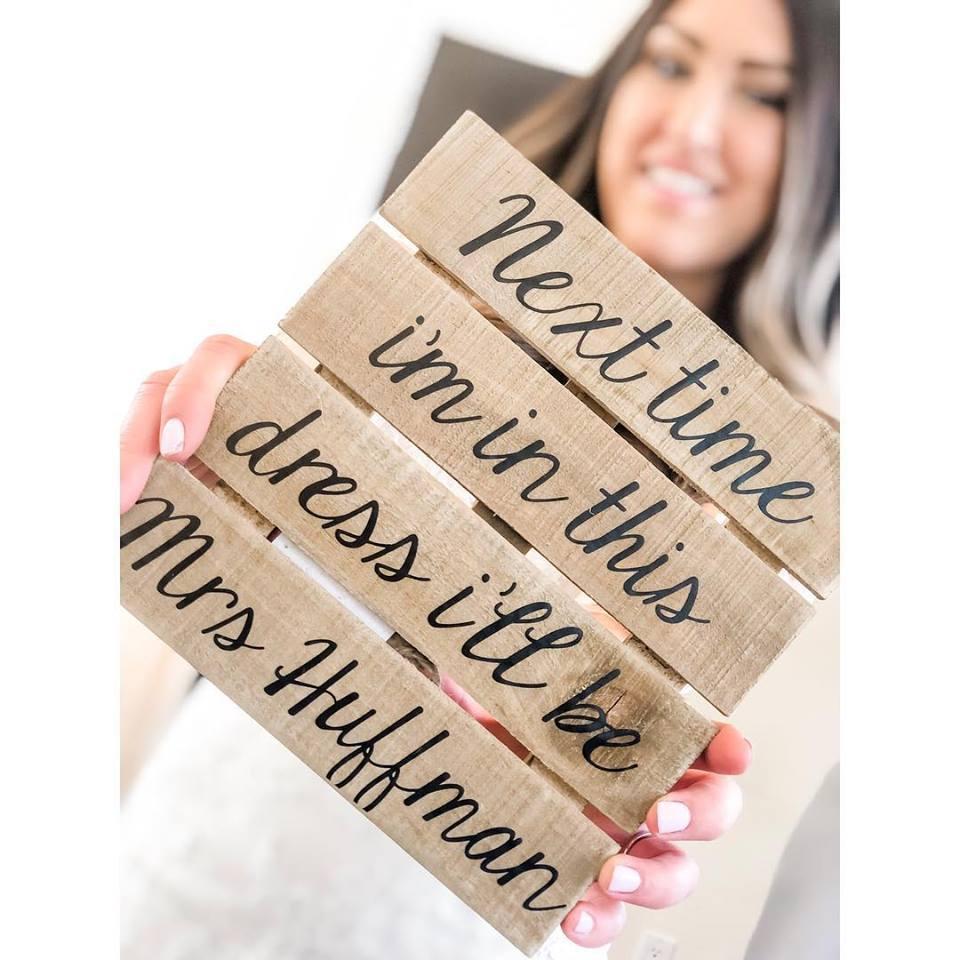 Next time
i'm in this
dress i'll be
Mrs Huffman